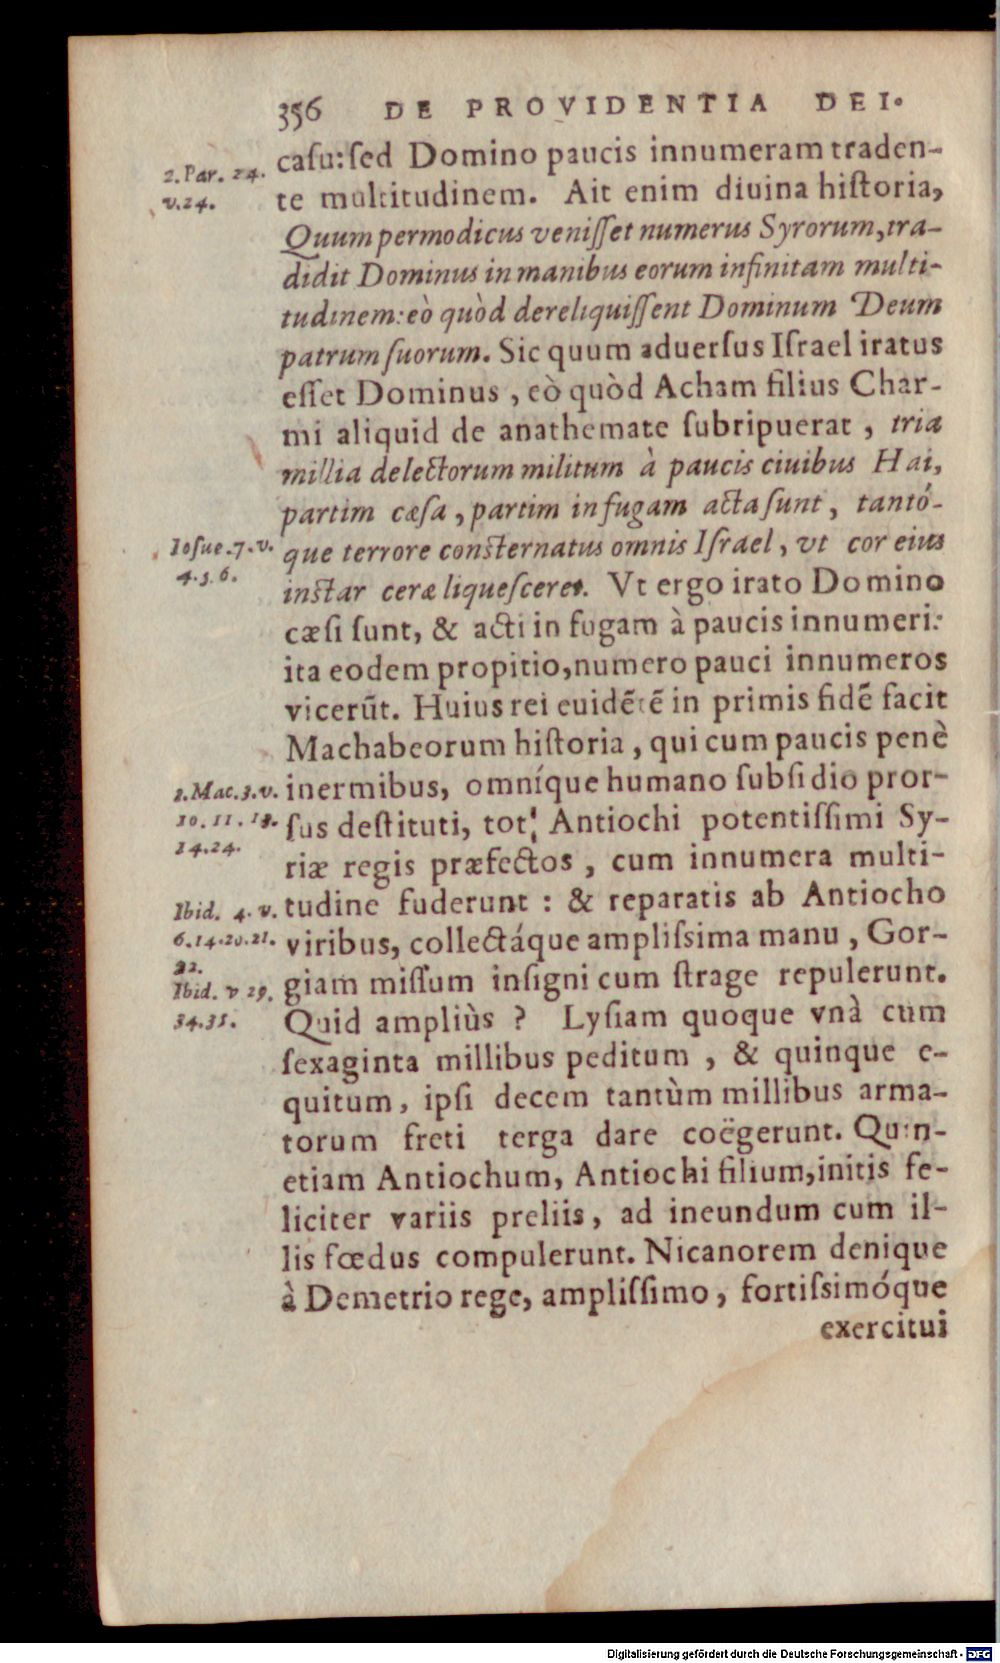 356 DE PROVIDENTIA DEI.
2. Par. 24.
v. 24.
caſu: ſed Domino paucis innumeram traden-
te multitudinem. Ait enim diuina hiſtoria,
Quum permodicus veniſſet numerus Syrorum, tra-
didit Dominus in manibus eorum infinitam multi-
tudinem: eò quòd dereliquiſſent Dominum Deum
patrum ſuorum. Sic quum aduerſus Iſrael iratus
eſſet Dominus, eò quòd Acham filius Char-
mi aliquid de anathemate ſubripuerat, tria
millia delectorum militum à paucis ciuibus Hai,
partim cæſa, partim in fugam acta ſunt, tantó-
Ioſue. 7. v.
4. 5. 6.
que terrore conſternatus omnis Iſrael, vt cor eius
inſtar ceræ liqueſceret. Vt ergo irato Domino
cæſi ſunt, & acti in fugam à paucis innumeri:
ita eodem propitio, numero pauci innumeros
vicerūt. Huius rei euidētē in primis fidē facit
Machabeorum hiſtoria, qui cum paucis penè
1. Mac. 3. v.
10. 11. 13.
14. 24.
inermibus, omníque humano ſubſidio pror-
ſus deſtituti, tot Antiochi potentiſſimi Sy-
riæ regis præfectos, cum innumera multi-
Ibid. 4. v.
6. 14. 20. 21.
22.
tudine fuderunt: & reparatis ab Antiocho
viribus, collectáque ampliſsima manu, Gor-
giam miſſum inſigni cum ſtrage repulerunt.
Ibid. v 29.
34. 35.
Quid ampliùs? Lyſiam quoque vnà cum
ſexaginta millibus peditum, & quinque e-
quitum, ipſi decem tantùm millibus arma-
torum freti terga dare coëgerunt. Quin-
etiam Antiochum, Antiochi filium, initis fe-
liciter variis preliis, ad ineundum cum il-
lis fœdus compulerunt. Nicanorem denique
à Demetrio rege, ampliſſimo, fortiſsimóque
exercitui
Digitalisierung gefördert durch die Deutsche Forschungsgemeinschaft - DFG